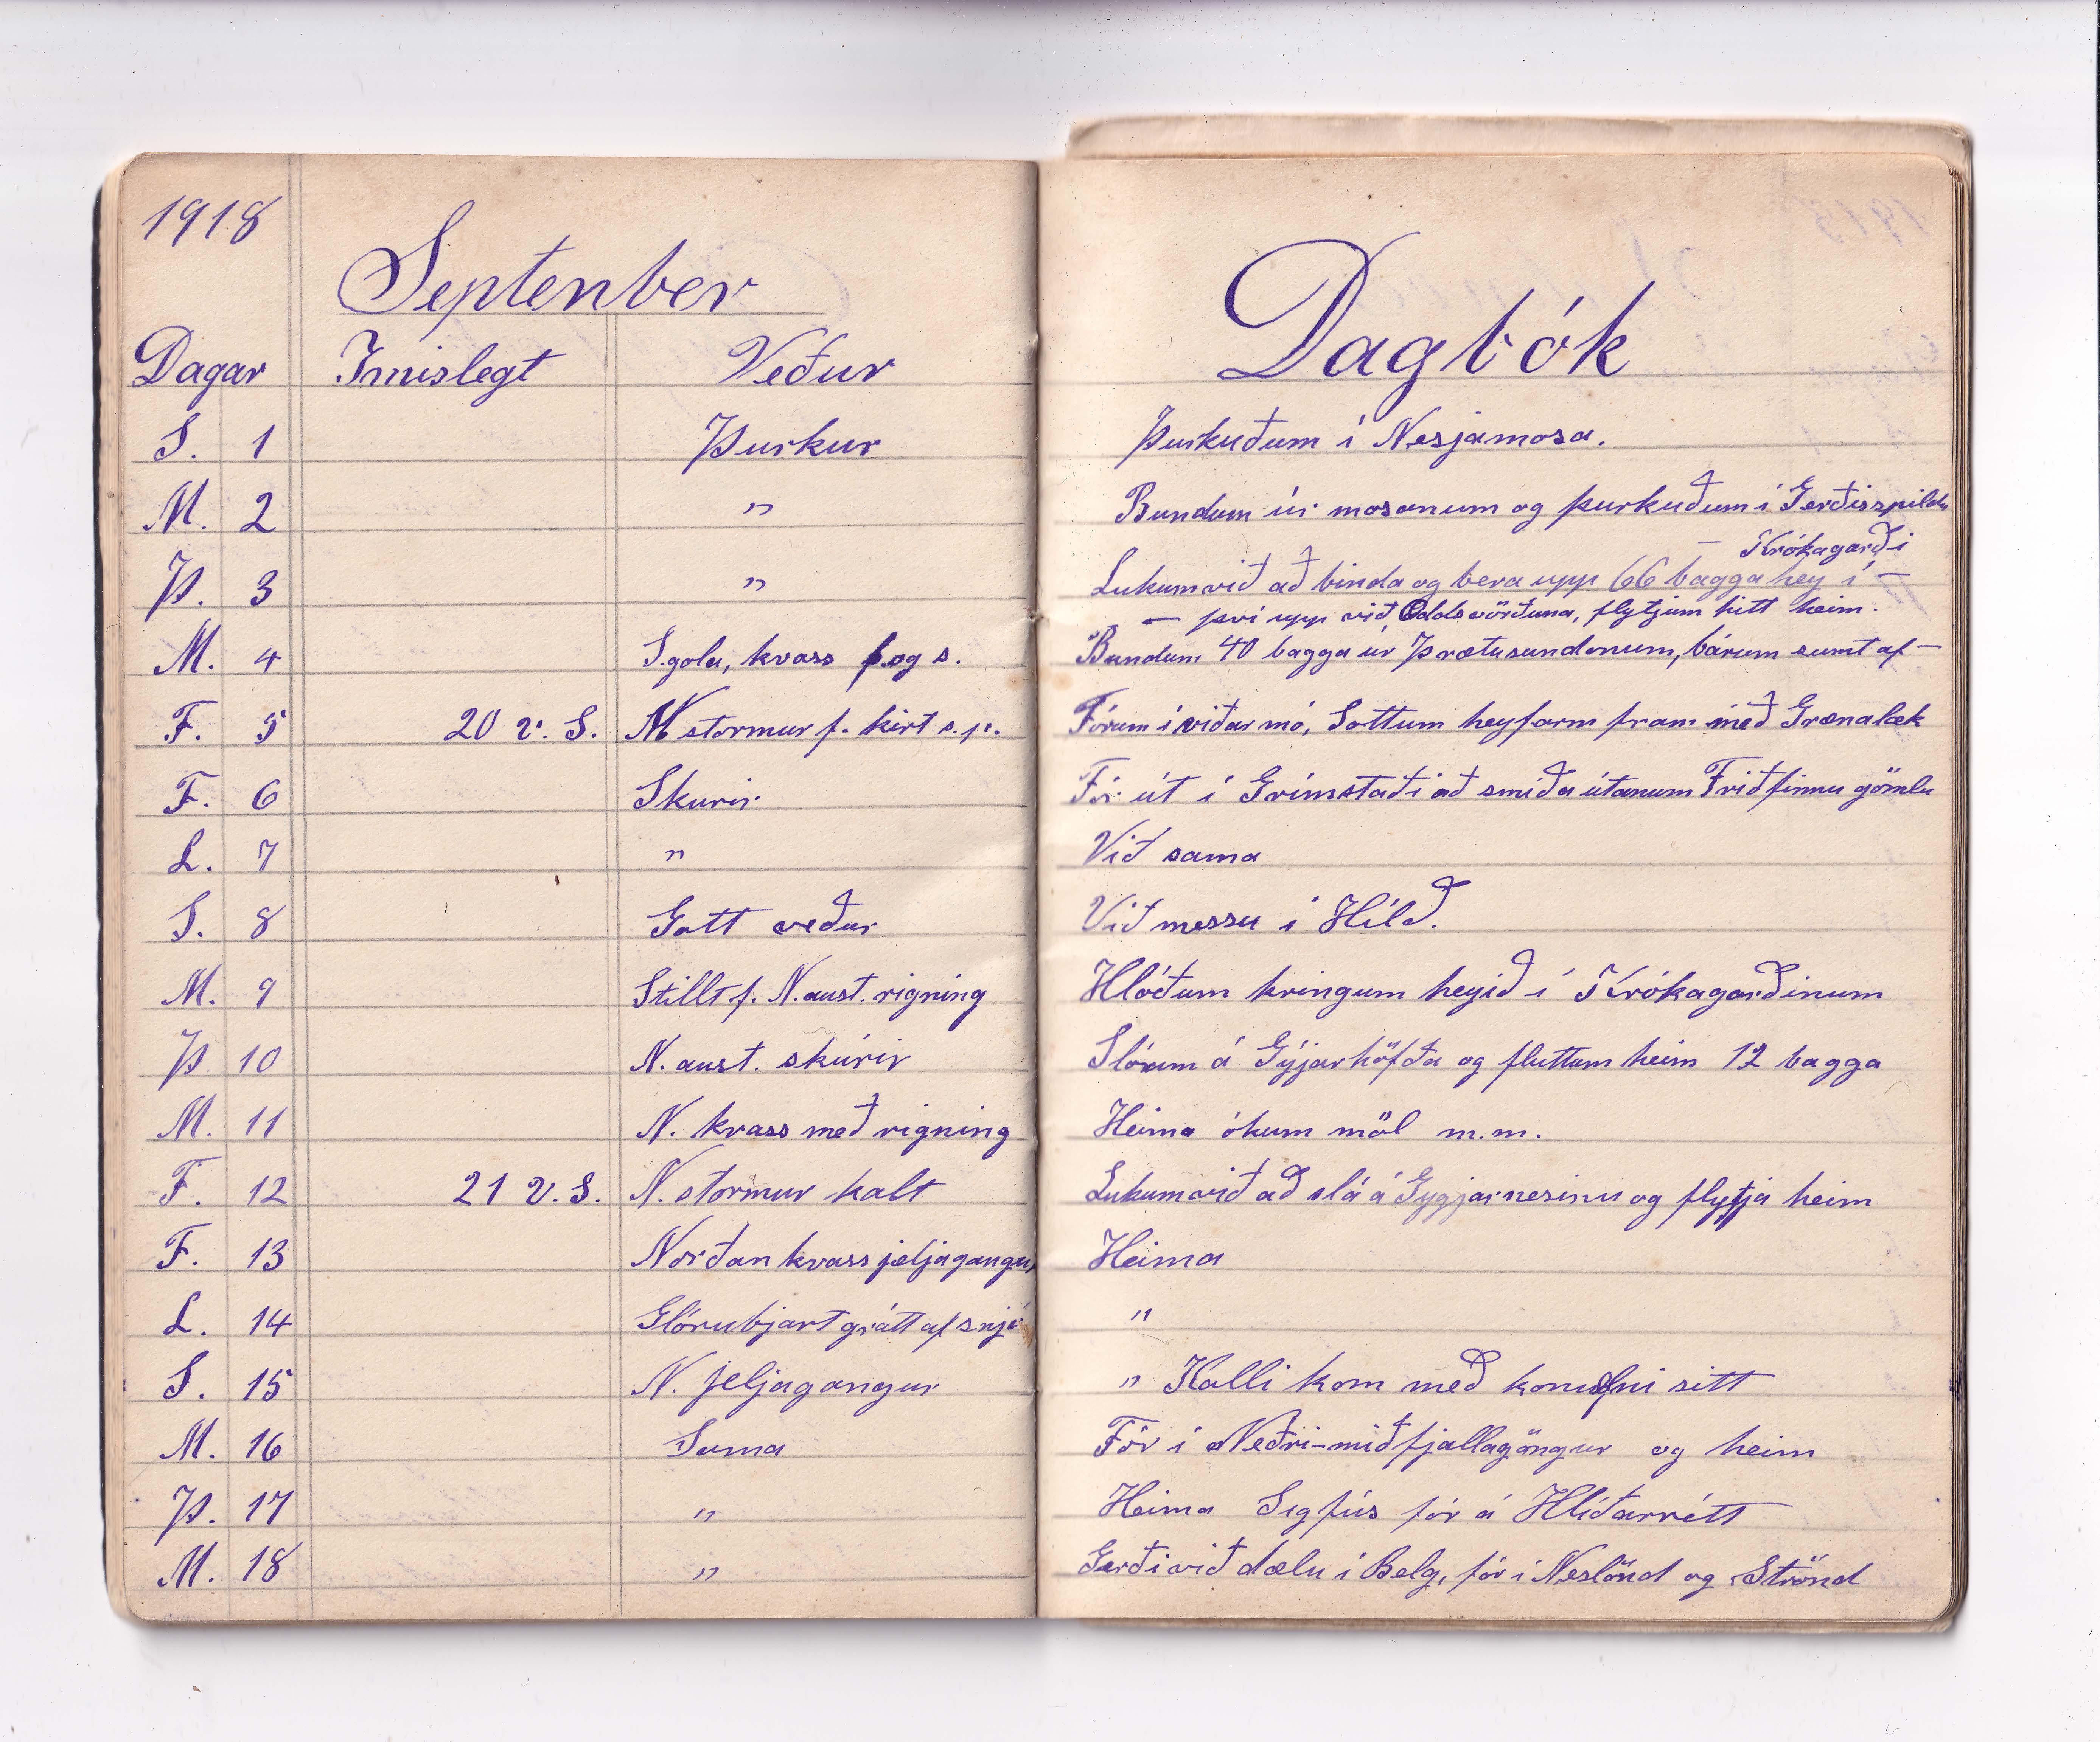 1918
September
Dagar Imislegt Veður
S. 1 Þurkur
M. 2 "
Þ. 3 "
M. 4 S.gola, kvass f. og s.
F. 5 20 v. S. N stormur f. kirt s.p.
F. 6 Skurir
L. 7 "
S. 8 Gott veður
M. 9 Stillt f. N.aust. rigning
Þ 10 N. aust. skúrir
M. 11 N. kvass með rigning
F. 12 21 v. S. N. stormur kalt
F. 13 Norðan kvass jeljagangur
L. 14 Glórubjart grátt af snjó
S. 15 N. jeljagangur
M. 16 Sama
Þ. 17 "
M. 18 "
Dagbók
Þurkuðum í Nesjamosa.
Bundum úr mosanum og þurkuðum í Gerðisspildu
– Krókagarði
Lukum við að binda og bera upp 66 bagga hey í –
– því upp við Oddsvörðuna, flytjum hitt heim.
Bundum 40 bagga úr Þrætusundonum, bárum sumt af –
Fórum í viðarmó, Sottum heyfarm fram með Grænalæk
Fór út í Grímstaði að smíða útanum Friðfinnu gömlu
Við sama
Við messu í Hlíð.
Hlóðum kringum heyið í Krókagarðinum
Slóum á Gýjarhöfða og fluttum heim 12 bagga
Heima ókum möl m.m.
Lukum við að slá á Gygjarnesinu og flytja heim
Heima
"
" Halli kom með konuefni sitt
Fór í Neðri-miðfjallagöngur og heim
Heima Sigfús fór á Hlíðarrétt
Gerði við dælu í Belg, fór í Neslönd og Strönd